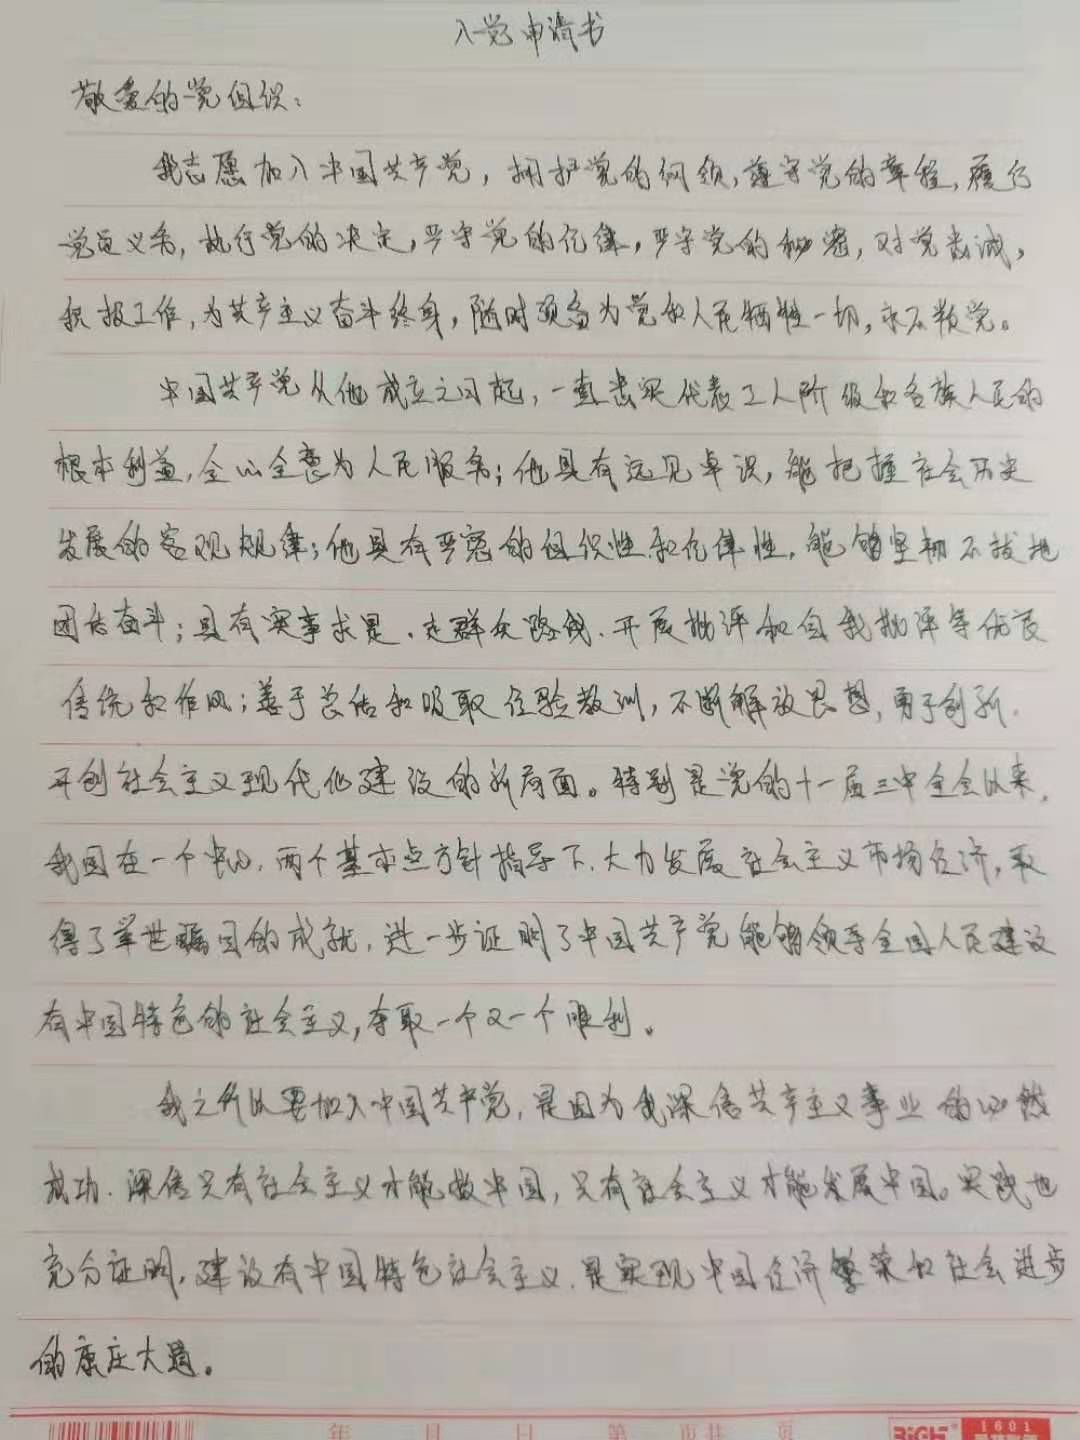 入党申请书
敬爱的党组织：
我志愿加入中国共产党，拥护党的纲领，遵守党的章程，履行
党员义务，执行党的决定，严守党的纪律，严守党的秘密，对党忠诚，
积极工作，为共产主义奋斗终身，随时预备为党和人民牺牲一切，永不叛党。
中国共产党从他成立之日起，一直忠实代表工人阶级和各族人民的
根本利益，全心全意为人民服务；他具有远见卓识，能把握社会历史
发展的客观规律；他具有严密的组织性和纪律性，能够坚韧不拔地
团结奋斗；具有实事求是、走群众路线、开展批评和自我批评等优良
传统和作风；善于总结和吸取经验教训，不断解放思想，勇于创新，
开创社会主义现代化建设的新局面。特别是党的十一届三中全会以来，
我国在一个中心、两个基本点方针指导下，大力发展社会主义市场经济，取
得了举世瞩目的成就，进一步证明了中国共产党能够领导全国人民建设
有中国特色的社会主义，夺取一个又一个胜利。
我之所以要加入中国共中党，是因为我深信共产主义事业的必然
成功，深信只有社会主义才能救中国，只有社会主义才能发展中国。实践也
充分证明，建设有中国特色社会主义，是实现中国经济繁荣和社会进步
的康庄大道。
年 月 日 第 页共 页
1601